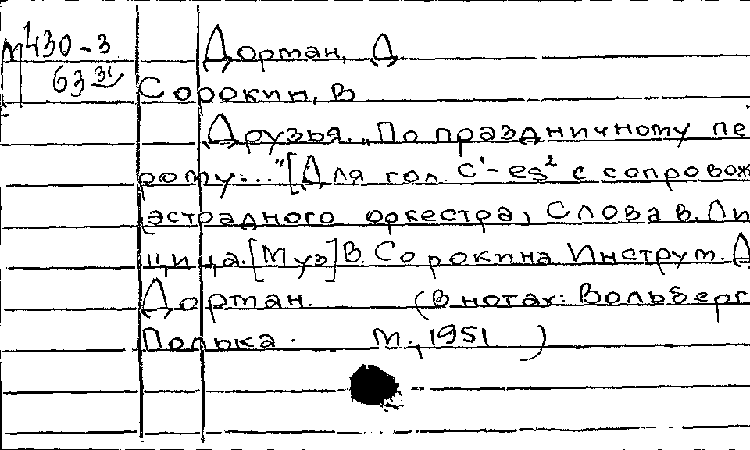 М430-3 Дортан, Д
63 31 Сорокин, В
Друзья. „По праздничному пе
рому..." [Для гол. c¹-es² с сопровож
(эстрадного оркестра, Слова В. Ли
щица. [Муз] В. Сорокина Инструм. Д
Дортан. (В нотах: Вольберг
Полька. М., 1951)